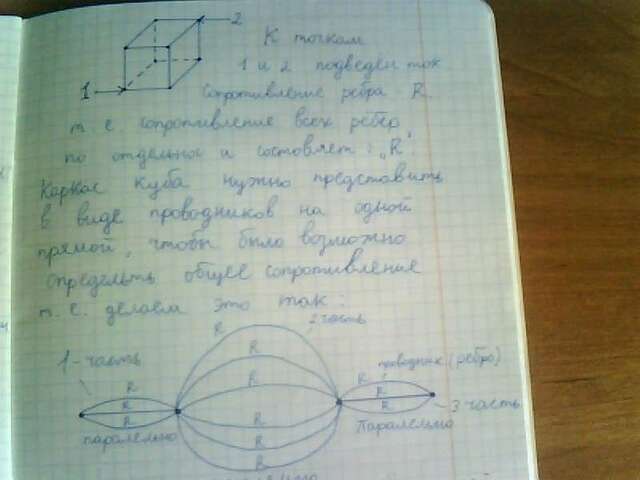 2
1
К точкам
1 и 2 подведён ток
Сопротивление ребра R
т. е. сопротивление всех рёбер
по отдельности и состовляет: "R".
Каркас куба нужно представить
в виде проводников на одной
прямой, чтобы было возможно
определить общее сопротивление
т. е. делаем это так:
R
2 часть
1-часть
R
проводник (ребро)
R
R
R
R
R
R
R
R
3 часть
паралельно
R
Паралельно
R
R